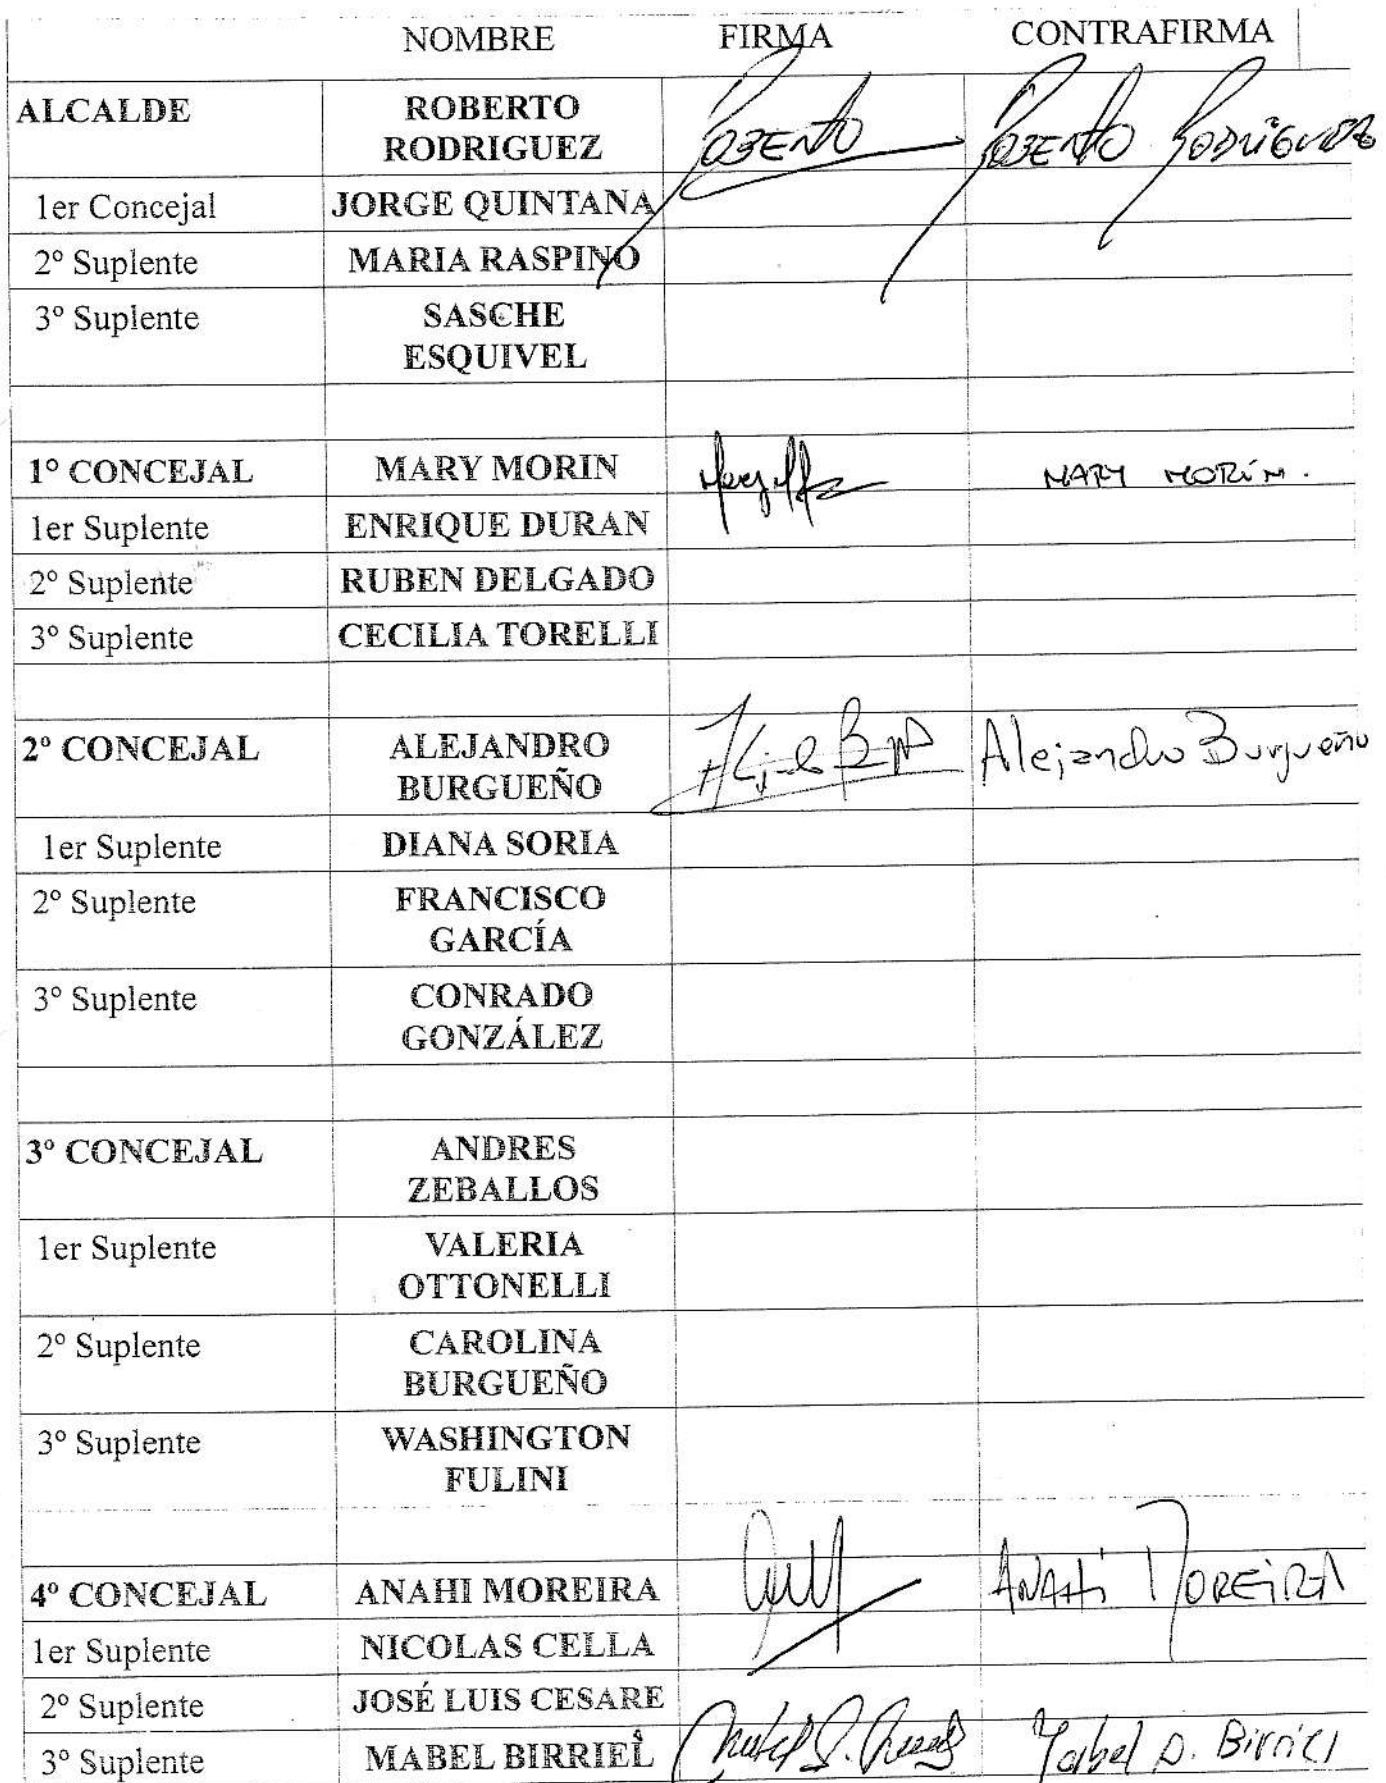 NOMBRE FIRMA CONTRAFIRMA
ALCALDE ROBERTO RODRIGUEZ ROBERTO ROBERTO RODRIGUEZ
1er Concejal JORGE QUINTANA
2º Suplente MARIA RASPINO
3º Suplente SASCHE
ESQUIVEL
1º CONCEJAL MARY MORIN MARY MORÍN.
1er Suplente ENRIQUE DURAN
2º Suplente RUBEN DELGADO
3º Suplente CECILIA TORELLI
2º CONCEJAL ALEJANDRO
BURGUEÑO Alejandro Burgueño
1er Suplente DIANA SORIA
2º Suplente FRANCISCO
GARCÍA
3º Suplente CONRADO
GONZÁLEZ
3º CONCEJAL ANDRES
ZEBALLOS
1er Suplente VALERIA
OTTONELLI
2º Suplente CAROLINA
BURGUEÑO
3º Suplente WASHINGTON
FULINI
4º CONCEJAL ANAHI MOREIRA ANAHÍ MOREIRA
1er Suplente NICOLAS CELLA
2º Suplente JOSÉ LUIS CESARE
3º Suplente MABEL BIRRIEL Mabel D. Birriel